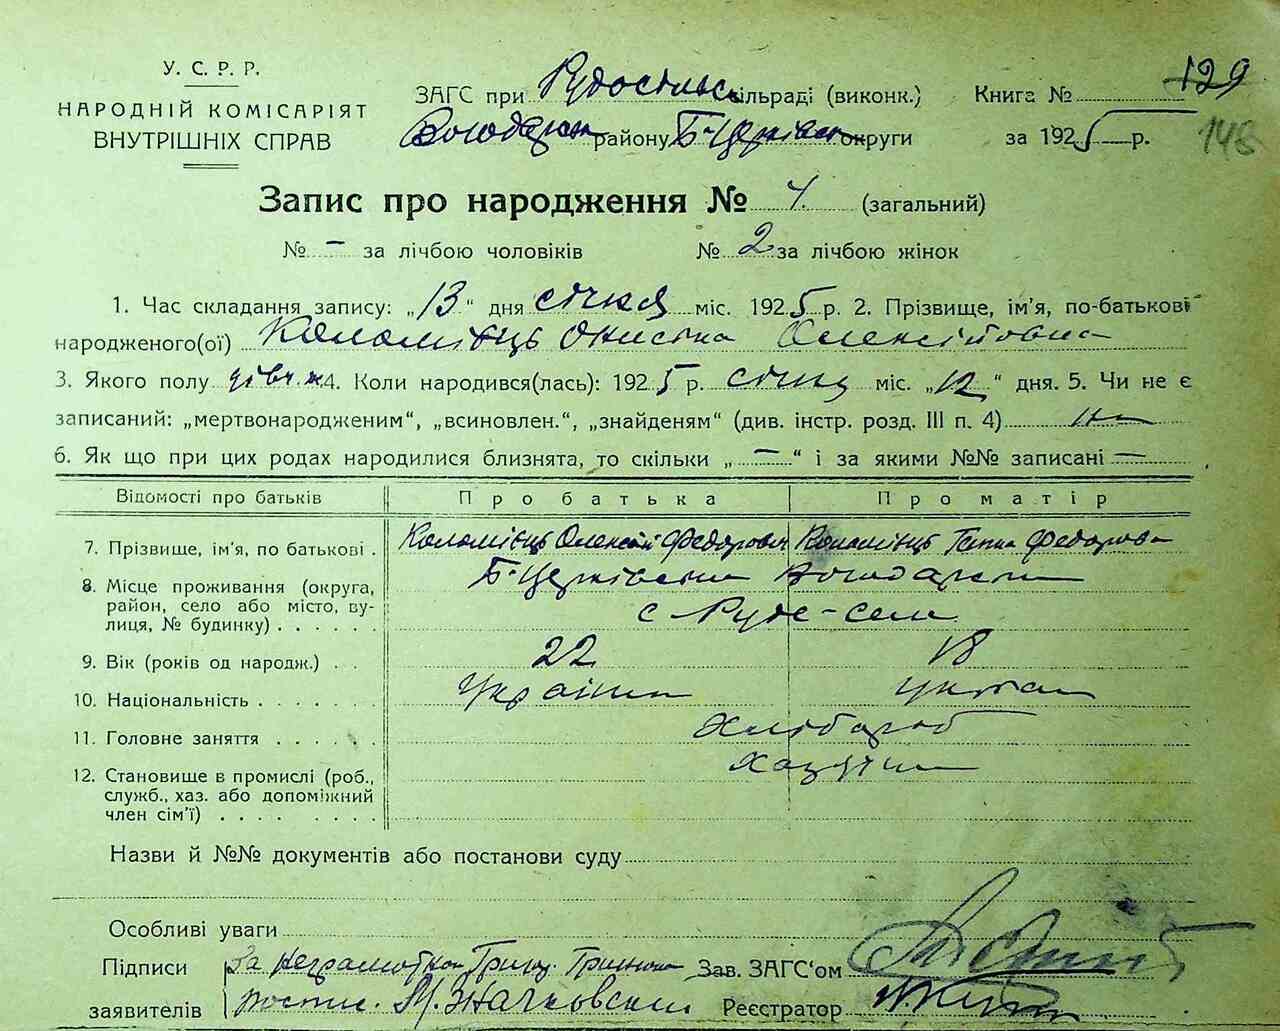 У. С. Р. Р.
НАРОДНІЙ КОМІСАРІЯТ
ВНУТРІШНІХ СПРАВ
ЗАГС при Рудосільск сільраді (виконк.)
Володарськ району Б-Церківськ округи
Книга № 129
за 1925 р.
148
Запис про народження № 4. (загальний)
№ – за лічбою чоловіків № 2 за лічбою жінок
1. Час складання запису: „13“ дня січня міс. 1925 р. 2. Прізвище, ім'я, по-батькові
народженого(ої) Коломієць Онисіка Олексіївна
3. Якого полу дівч. ж 4. Коли народився(лась): 1925 р. січня міс. „12“ дня. 5. Чи не є
записаний: „мертвонародженим“, „всиновлен.“, „знайденям“ (див. інстр. розд. III п. 4)
6. Як що при цих родах народилися близнята, то скільки „–“ і за якими №№ записані –
Відомості про батьків Про батька Про матір
7. Прізвище, ім'я, по батькові . Коломієць Олексій Федорович Коломієць Ганна Федорова
8. Місце проживання (округа, Б-Церківська Володарськ
район, село або місто, ву- с Руде-село
лиця, № будинку) . . . . . .
9. Вік (років од народж.) . . 22 18
10. Національність . . . . . . . Україн укра
11. Головне заняття . . . . . . Хлібороб
12. Становище в промислі (роб., хазяїн
служб., хаз. або допоміжний
член сім'ї) . . . . . . . .
Назви й №№ документів або постанови суду
Особливі уваги
Підписи За неграмотной Григ. Зав. ЗАГС'ом
заявителів роспис. М. Значковский Реєстратор